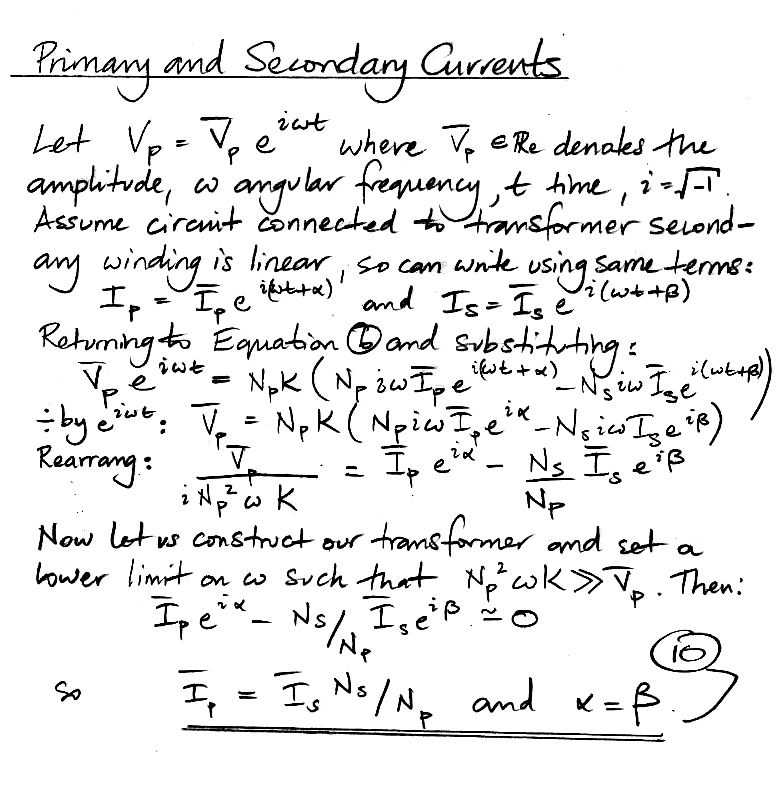 Primary and Secondary Currents
Let Vₚ = V̅ₚ e^{iωt} where V̅ₚ ∈ ℝe denotes the
amplitude, ω angular frequency, t time, i = √-1.
Assume circuit connected to transformer second-
ary winding is linear, so can write using same terms:
Iₚ = I̅ₚ e^{i(ωt+α)} and Iₛ = I̅ₛ e^{i(ωt+β)}
Returning to Equation ⑥ and substituting:
V̅ₚ e^{iωt} = NₚK (Nₚ iω I̅ₚ e^{i(ωt+α)} - Nₛ iω I̅ₛ e^{i(ωt+β)})
÷ by e^{iωt}: V̅ₚ = NₚK (Nₚ iω I̅ₚ e^{iα} - Nₛ iω I̅ₛ e^{iβ})
Rearrang: V̅ₚ / i Nₚ² ω K = I̅ₚ e^{iα} - Nₛ / Nₚ I̅ₛ e^{iβ}
Now let us construct our transformer and set a
lower limit on ω such that Nₚ² ωK ≫ V̅ₚ. Then:
I̅ₚ e^{iα} - Nₛ/Nₚ I̅ₛ e^{iβ} ≃ 0
⑩
so I̅ₚ = I̅ₛ Nₛ/Nₚ and α = β.